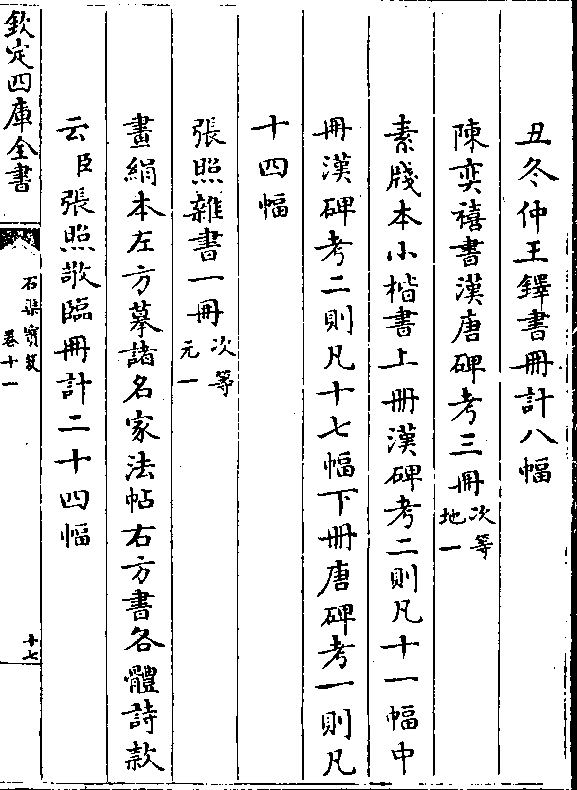 丑冬仲王鐸書冊計八幅
陳奕禧書漢唐碑考三冊次等地一
素牋本小楷書上冊漢碑考二則凡十一幅中
冊漢碑考二則凡十七幅下冊唐碑考一則凡
十四幅
張照雜書一冊次等元一
畫絹本左方摹諸名家法帖右方書各體詩款
云臣張照敬臨冊計二十四幅
欽定四庫全書
石渠寶笈
卷十一
十七